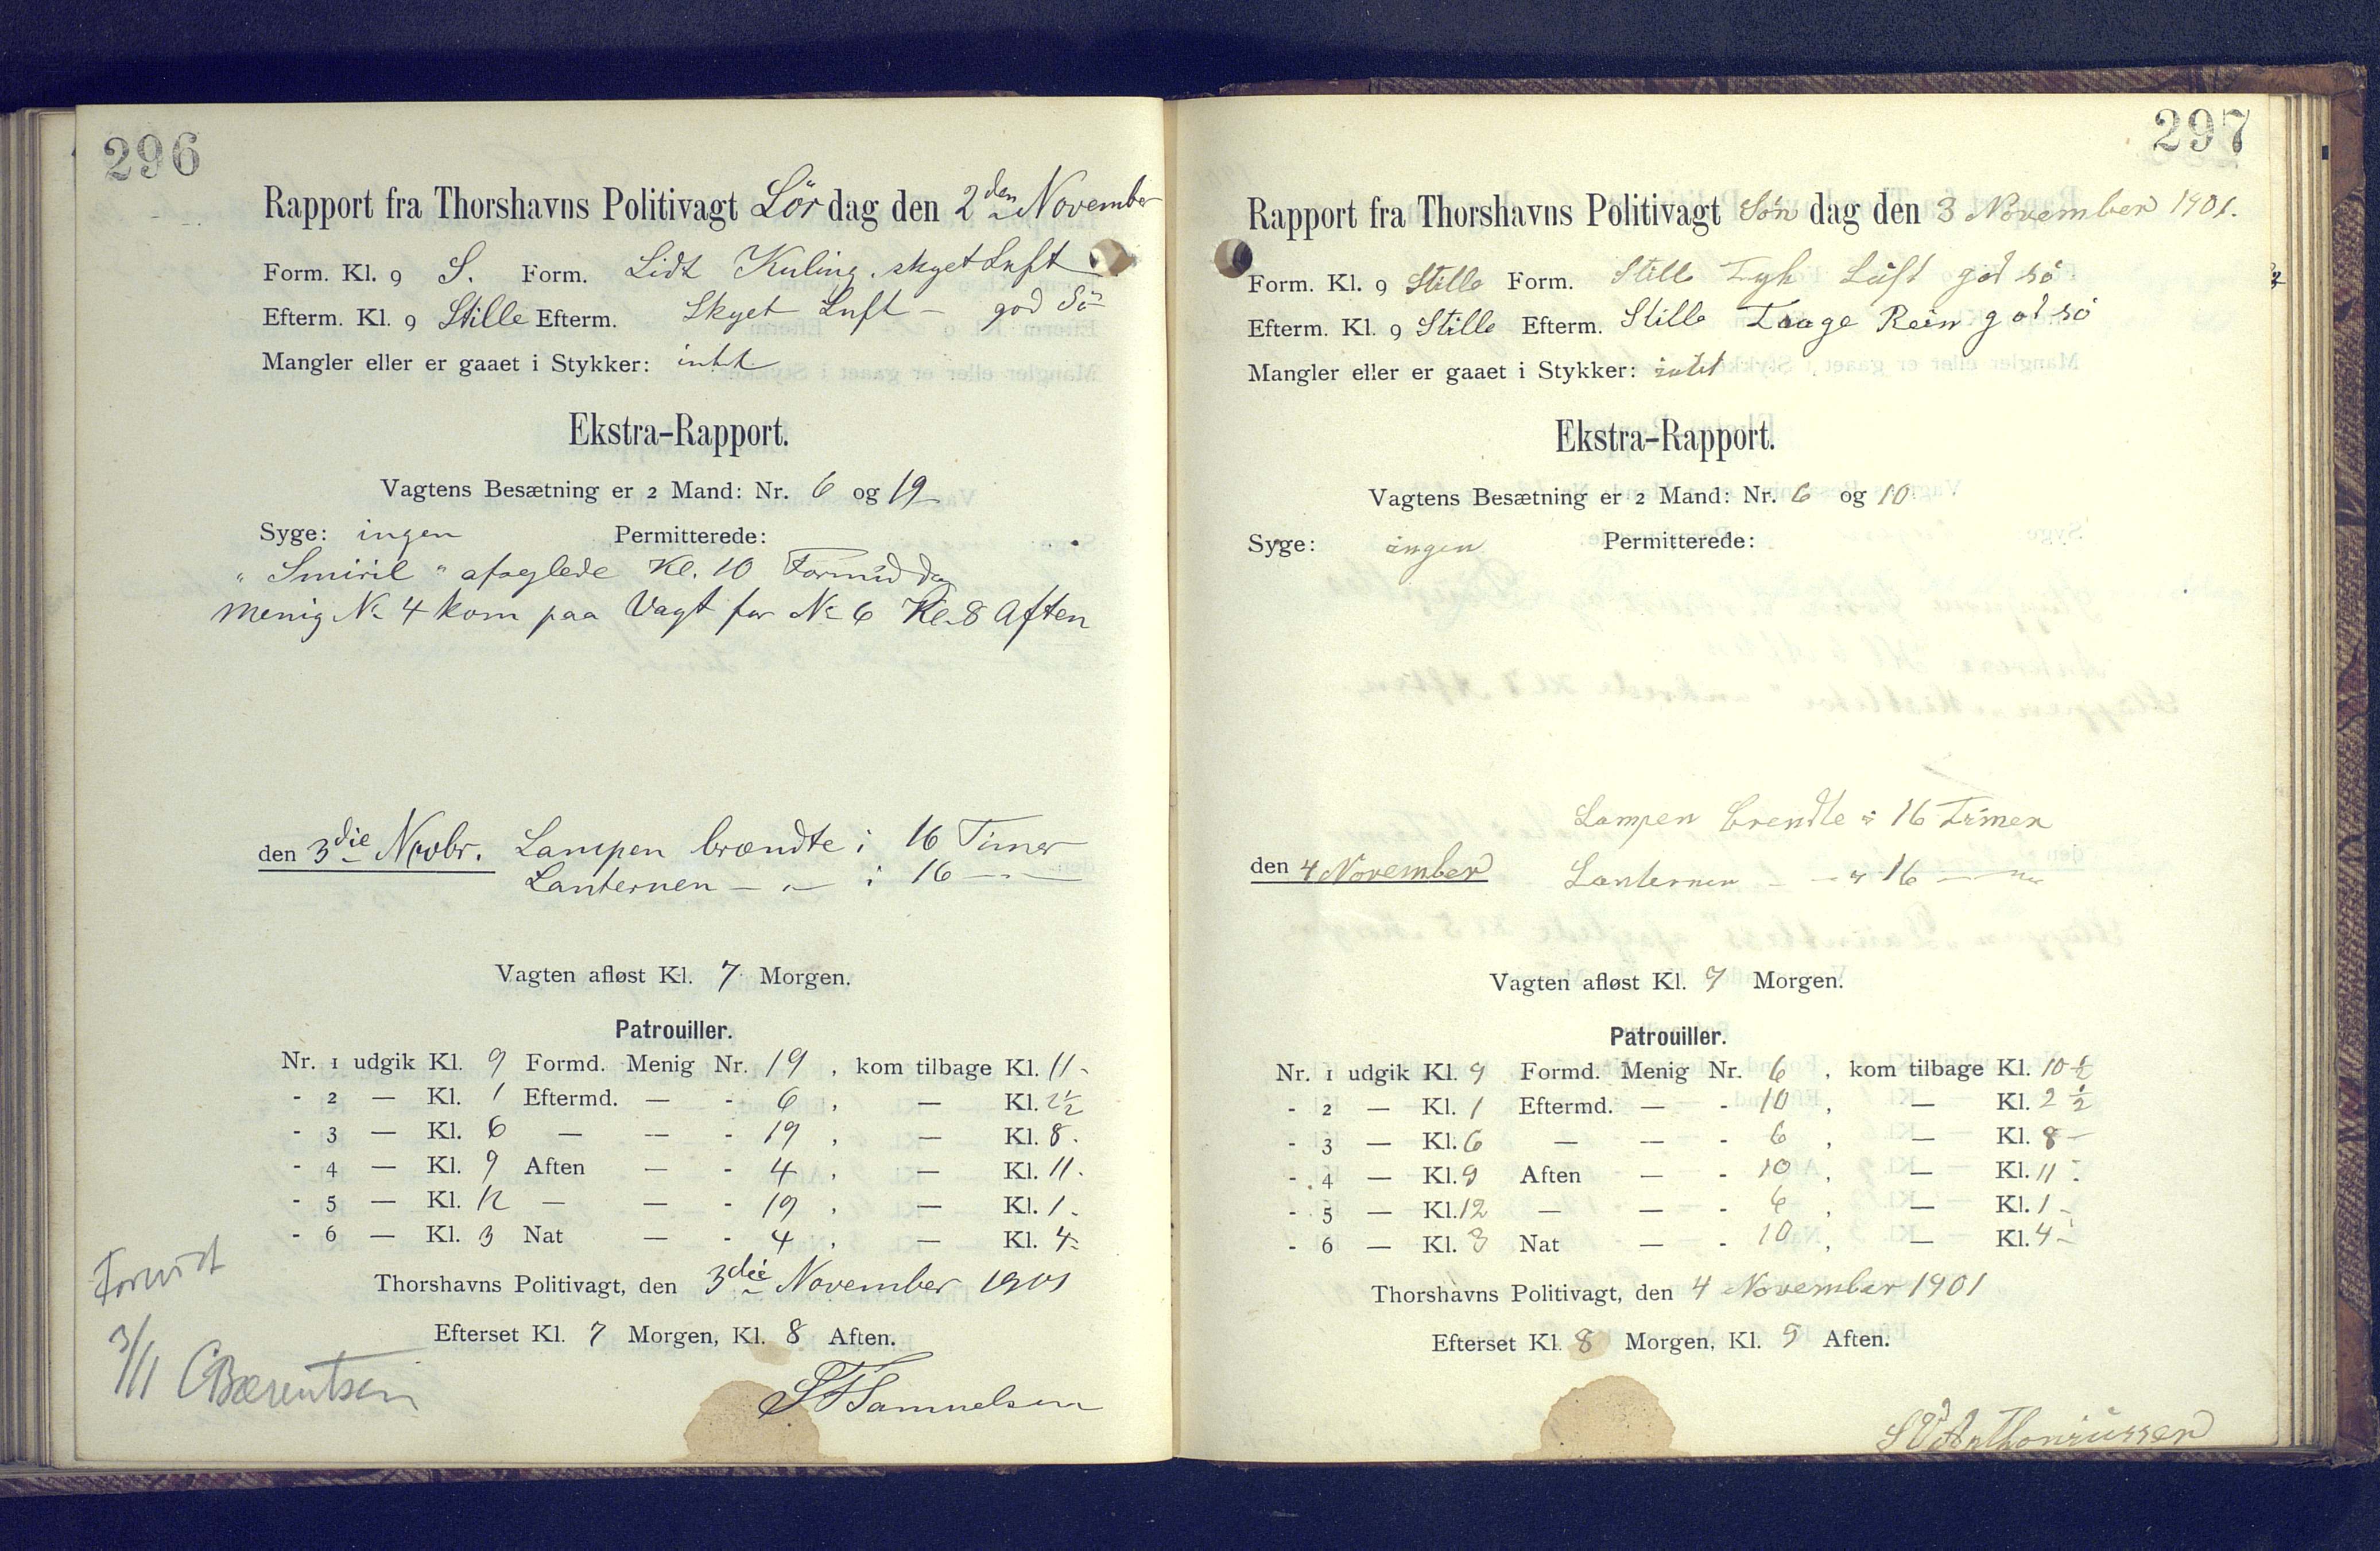 296
Rapport fra Thorshavns Politivagt Lördag den 2den November
Form. Kl. 9 S. Form. Lidt Kuling. skyet Luft
Efterm. Kl. 9 Stille Efterm. Skyet Luft – god Sö
Mangler eller er gaaet i Stykker: intet
Ekstra-Rapport.
Vagtens Besætning er 2 Mand: Nr. 6 og 19
Syge: ingen Permitterede:
"Smiril" afseglede Kl. 10 Formiddag
Menig No 4 kom paa Vagt for No 6 Kl. 8 Aften
den 3die Novbr. Lampen brændte i 16 Timer
Lanternen – " – i 16 – " –
Vagten afløst Kl. 7 Morgen.
Patrouiller.
Nr. 1 udgik Kl. 9 Formd. Menig Nr. 19, kom tilbage Kl. 11-
- 2 — Kl. 1 Eftermd. — - 6, — Kl. 2½
- 3 — Kl. 6 — — - 19, — Kl. 8.
- 4 — Kl. 9 Aften — - 4, — Kl. 11.
- 5 — Kl. 12 — — - 19, — Kl. 1.
- 6 — Kl. 3 Nat — - 4, — Kl. 4-
Thorshavns Politivagt, den 3die November 1901
Efterset Kl. 7 Morgen, Kl. 8 Aften.
Forevist
3/11 CBærentsen
Samuelsen
297
Rapport fra Thorshavns Politivagt Søn dag den 3 November 1901.
Form. Kl. 9 Stille Form. Stille Tyk Luft god sö
Efterm. Kl. 9 Stille Efterm. Stille Taage Rein god sö
Mangler eller er gaaet i Stykker: intet
Ekstra-Rapport.
Vagtens Besætning er 2 Mand: Nr. 6 og 10
Syge: ingen Permitterede:
Lampen brendte i 16 Timer
den 4 November Lanternen – " 16 – " –
Vagten afløst Kl. 7 Morgen.
Patrouiller.
Nr. 1 udgik Kl. 9 Formd. Menig Nr. 6, kom tilbage Kl. 10½
- 2 — Kl. 1 Eftermd. — - 10, — Kl. 2½
- 3 — Kl. 6 — — - 6, — Kl. 8-
- 4 — Kl. 9 Aften — - 10, — Kl. 11-
- 5 — Kl. 12 — — - 6, — Kl. 1-
- 6 — Kl. 3 Nat — - 10, — Kl. 4-
Thorshavns Politivagt, den 4 November 1901
Efterset Kl. 8 Morgen, Kl. 9 Aften.
Anthoniussen